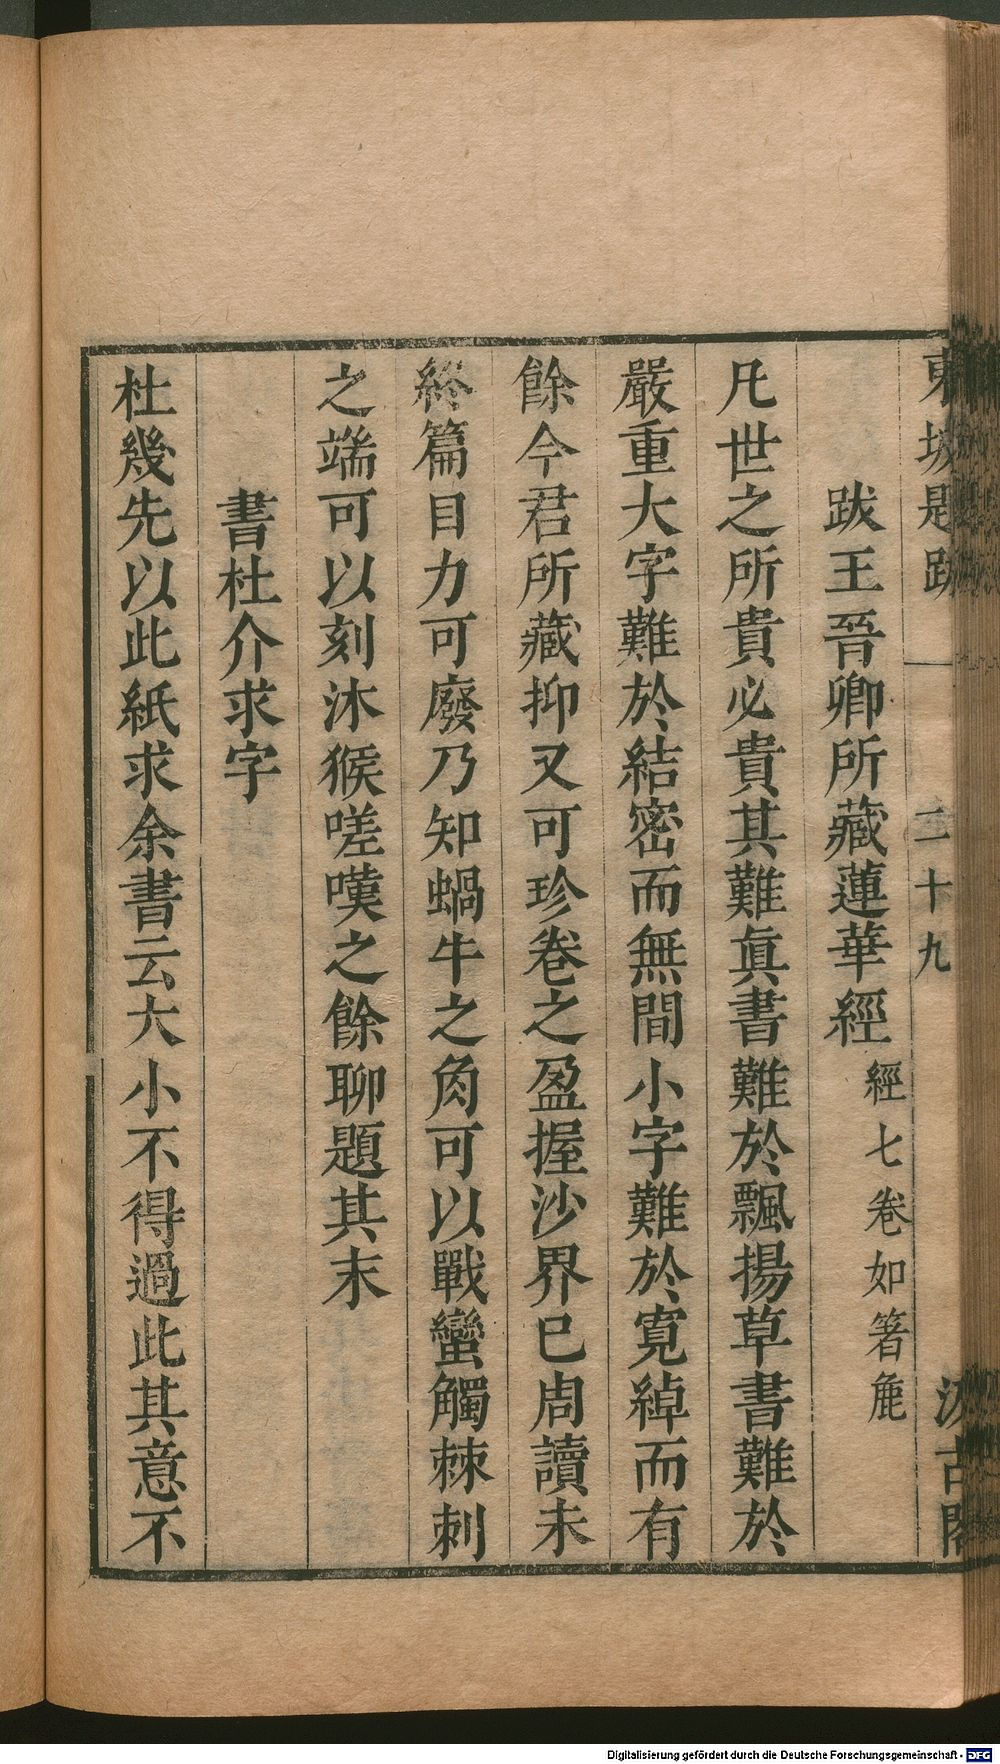 東坡題跋 一 二十九 汲古閣
跋王晉卿所藏蓮華經 經七卷如箸麄
凡世之所貴必貴其難眞書難於飄揚草書難於
嚴重大字難於結密而無間小字難於寬綽而有
餘今君所藏抑又可珍卷之盈握沙界已周讀未
終篇目力可廢乃知蝸牛之角可以戰蠻觸棘刺
之端可以刻沐猴嗟嘆之餘聊題其末
書杜介求字
杜幾先以此紙求余書云大小不得過此其意不
Digitalisierung gefördert durch die Deutsche Forschungsgemeinschaft - DFG